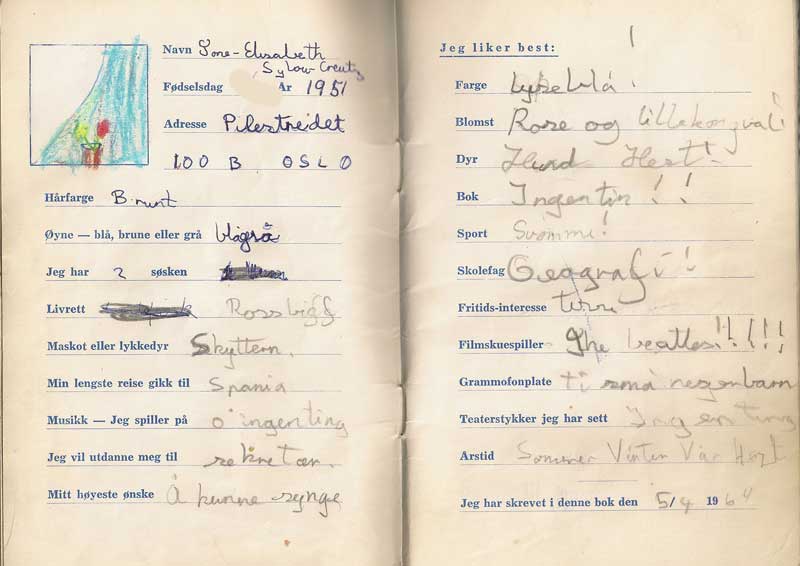 Navn Tone-Elisabeth
Sylow-Creutz
Fødselsdag År 1951
Adresse Pilestredet
100 B OSLO
Hårfarge Brunt
Øyne — blå, brune eller grå blågrå
Jeg har 2 søsken
Livrett Rossbigg
Maskot eller lykkedyr Skyttern.
Min lengste reise gikk til Spania
Musikk — Jeg spiller på ingenting
Jeg vil utdanne meg til sekretær.
Mitt høyeste ønske Å kunne synge
Jeg liker best: !
Farge Lyseblå!
Blomst Rose og lillekonvall!
Dyr Hund Hest!
Bok Ingentin!!
Sport Svømme!
Skolefag Geografi!
Fritids-interesse turn
Filmskuespiller The beatles!!!!!
Grammofonplate ti små negerbarn
Teaterstykker jeg har sett Ingenting
Årstid Sommer Vinter Vår Høst
Jeg har skrevet i denne bok den 5/4 1964